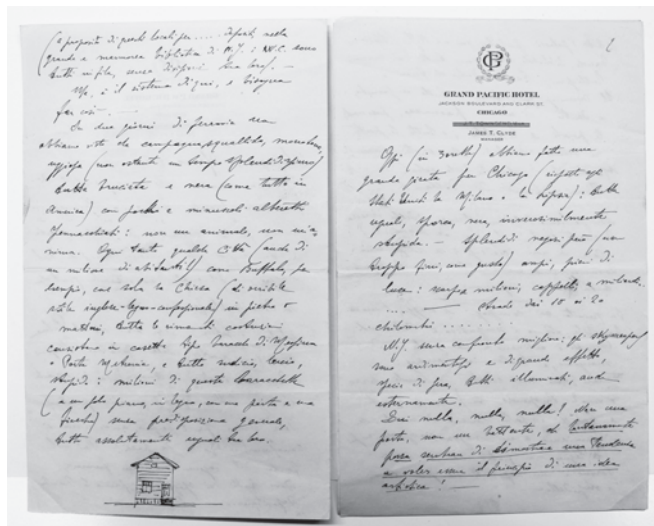 (a proposito di questi locali per .... Infatti, nella
grande e marmorea biblioteca di N.Y.: i W.C. sono
tutti in fila, senza divisioni tra loro). —
Ma, è il sistema di qui, e bisogna
far così. —
In due giorni di ferrovia non
abbiamo visto che campagna squallida, monotona,
uggiosa (non ostante un tempo splendidissimo)
tutta bruciata e nera (come tutto in
America) con pochi e minuscoli alberetti
: non un animale, non un'a-
nima. Ogni tanto qualche città (anche di
un milione di abitanti!) come Buffalo, per
esempio, con solo la Chiesa (di orribile
stile inglese-) in pietra o
mattoni, tutte le rimanenti costruzioni
consistono in casette tipo baracche di
o Porta , e tutto sudicio, lercio,
stupido: milioni di queste baraccette
(a un solo piano, in legno, con una porta e una
finestra) senza predisposizione generale,
tutte assolutamente uguali tra loro.
2
GP
GRAND PACIFIC HOTEL
JACKSON BOULEVARD AND CLARK ST.
CHICAGO
JAMES T. CLYDE
MANAGER
Oggi (in fretta) abbiamo fatto una
grande girata per Chicago (rispetto agli
Stati Uniti la Milano o la ): tutto
uguale, sporco, nero, inverosimilmente
stupido. — Splendidi negozi però (non
troppo fini, come gusto) ampi, pieni di
luce: scarpe milioni, cappelli a miliardi..
.... — Strade dai 18 ai 20
chilometri ........
N.Y. senza confronto migliore: gli skyscrapers
sono arditissimi e di grande effetto,
specie di sera, tutti illuminati, anche
esternamente.
Qui nulla, nulla, nulla! Non una
porta, non un battente, che lontanamente
possa sembrare di dimostrare una tendenza
a voler essere il principio di una idea
artistica! —